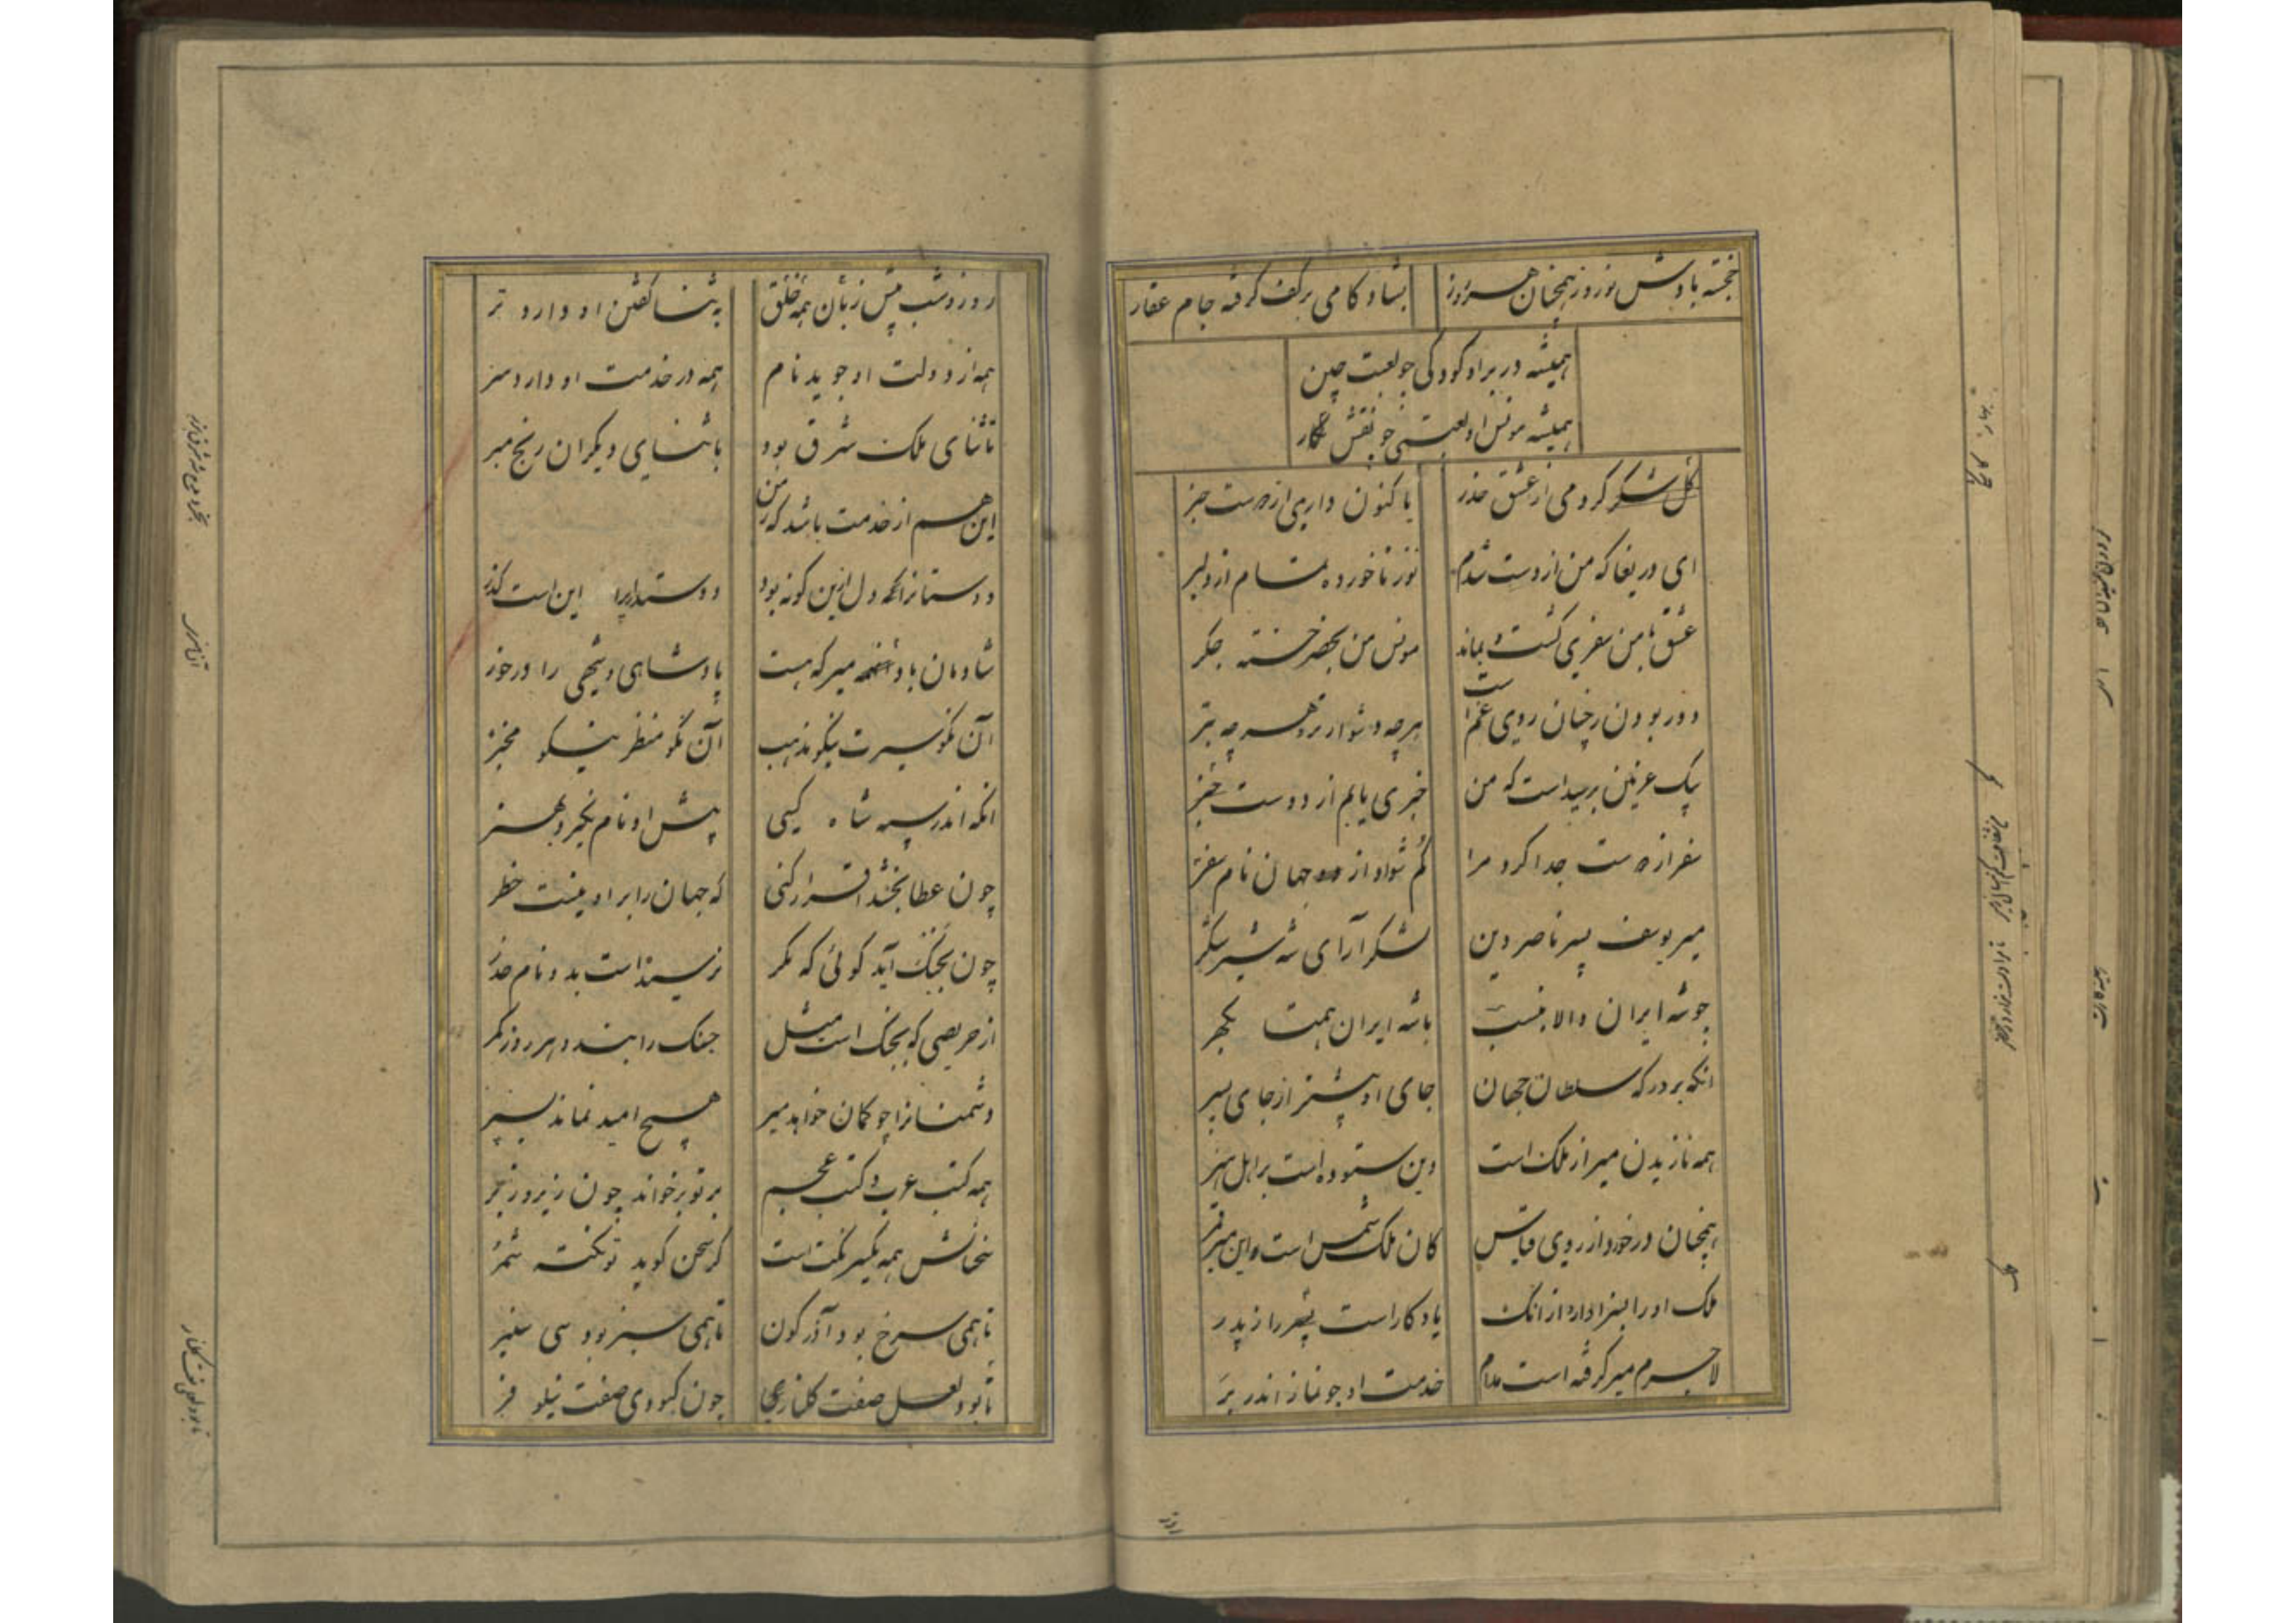 خجسته بادش نوروز همچنان هر روز بشادکامی بر کف گرفته جام عقار
همیشه در بر او کودکی چو لعبت چین
همیشه مونس او لعبتی چو نقش
دل کردمی از عشق حذر با کنون دارمی از دوست خبر
ای دریغا که من از دست شدم نوز ناخورده تمام از دل بر
عشق با من سفری گشت و بماند مونس من بحضر خسته جکر
دور بودن ز چنان روی غم است هر چه دشوارتر و هر چه بتر
پیک غزنین نرسیداست که من خبری یابم از دوست خبر
سفر از دوست جدا کرد مرا کم شواد از جهان نام سفر
میر یوسف پسر ناصر دین لشکر آرای شه شیر شکر
چو شه ایران والا بنسب با شه ایران همت بکهر
انکه بر درکه سلطان جهان جای او پیشتر از جای پسر
همه نازیدن میر از ملک است وین ستوده است بر اهل هنر
همچنان درخورد از روی قیاس کان ملک شمس است و این میر قمر
ملک او را بسزا دارد از انک یادکار است پسر را ز پدر
لاجرم میر گرفته است مدام خدمت او چو نماز اندر بر
روز و شب پیش زبان همه خلق به ثنا گفتن او دارد تر
همه از دولت او جوید نام همه در خدمت او دارد سر
تا ثنای ملک شرق بود با ثنای دیگران رنج مبر
این هم از خدمت باشد که ز من
دوستانرا همه دل ازین کونه بود دوستداریرا این است کذر
شادمان باد همه میر که هست پادشاهی و شهی را درخور
آن نکو سیرت نیکو مذهب آن نکو منظر نیکو مخبر
انکه اندر سپه شاه کسی پیش او نام نگیرد بهنر
چون عطا بخشد اقرار کنی که جهان را بر او نیست خطر
چون بجنک آید کوئی که مکر نرسیداست بدو نام حذر
از حریصی که بجنک است بمثل جنک را بندد هر روز کمر
دشمنانرا چو کمان خواهد میر هیچ امید نماند بسپر
همه کتب عرب و کتب عجم بر تو برخواند چون زیر و زبر
سخنانش همه یکسر نکت است کر سخن کوید تو نکته شمر
تا همی سرخ بود آذرکون تا همی سبز بود سی سنبر
تا بود لعل صفت کلنار چون کبودی صفت نیلوفر